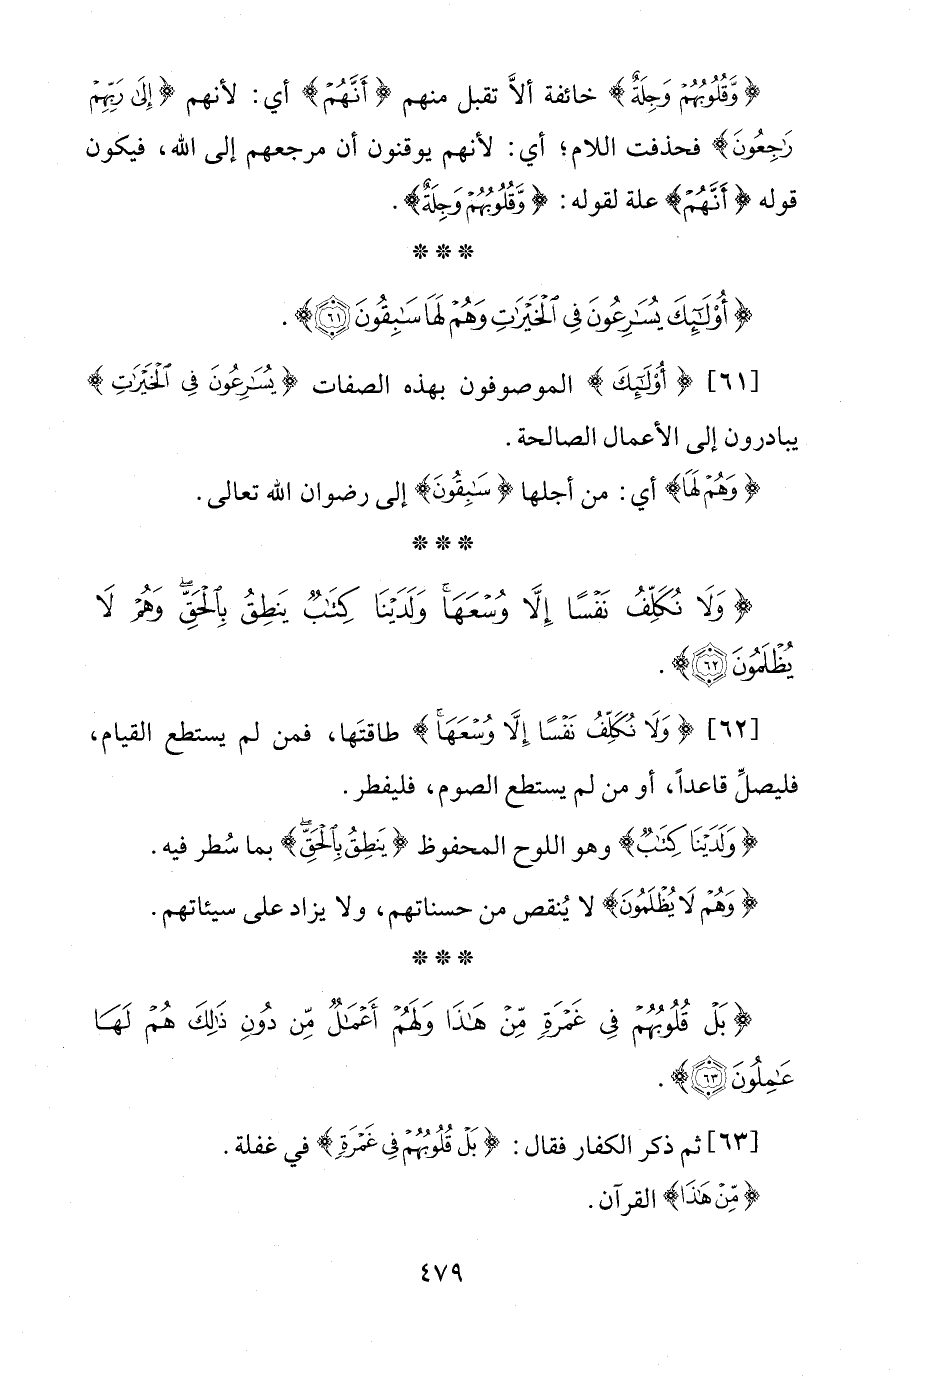 ﴿وَّقُلُوبُهُمْ وَجِلَةٌ﴾ خائفة ألاَّ تقبل منهم ﴿أَنَّهُمْ﴾ أي: لأنهم ﴿إِلَىٰ رَبِّهِمْ
رَٰجِعُونَ﴾ فحذفت اللام؛ أي: لأنهم يوقنون أن مرجعهم إلى الله، فيكون
قوله ﴿أَنَّهُمْ﴾ علة لقوله: ﴿وَّقُلُوبُهُمْ وَجِلَةٌ﴾.
* * *
﴿أُوْلَٰٓئِكَ يُسَٰرِعُونَ فِي ٱلْخَيْرَٰتِ وَهُمْ لَهَا سَٰبِقُونَ ٦١﴾.
[٦١] ﴿أُوْلَٰٓئِكَ﴾ الموصوفون بهذه الصفات ﴿يُسَٰرِعُونَ فِي ٱلْخَيْرَٰتِ﴾
يبادرون إلى الأعمال الصالحة.
﴿وَهُمْ لَهَا﴾ أي: من أجلها ﴿سَٰبِقُونَ﴾ إلى رضوان الله تعالى.
* * *
﴿وَلَا نُكَلِّفُ نَفْسًا إِلَّا وُسْعَهَاۚ وَلَدَيْنَا كِتَٰبٌ يَنطِقُ بِٱلْحَقِّۖ وَهُمْ لَا
يُظْلَمُونَ ٦٢﴾.
[٦٢] ﴿وَلَا نُكَلِّفُ نَفْسًا إِلَّا وُسْعَهَاۚ﴾ طاقتَها، فمن لم يستطع القيام،
فليصلِّ قاعداً، أو من لم يستطع الصوم، فليفطر.
﴿وَلَدَيْنَا كِتَٰبٌ﴾ وهو اللوح المحفوظ ﴿يَنطِقُ بِٱلْحَقِّۖ﴾ بما سُطر فيه.
﴿وَهُمْ لَا يُظْلَمُونَ﴾ لا يُنقص من حسناتهم، ولا يزاد على سيئاتهم.
* * *
﴿بَلْ قُلُوبُهُمْ فِي غَمْرَةٍ مِّنْ هَٰذَا وَلَهُمْ أَعْمَٰلٌ مِّن دُونِ ذَٰلِكَ هُمْ لَهَا
عَٰمِلُونَ ٦٣﴾.
[٦٣] ثم ذكر الكفار فقال: ﴿بَلْ قُلُوبُهُمْ فِي غَمْرَةٍ﴾ في غفلة.
﴿مِّنْ هَٰذَا﴾ القرآن.
٤٧٩